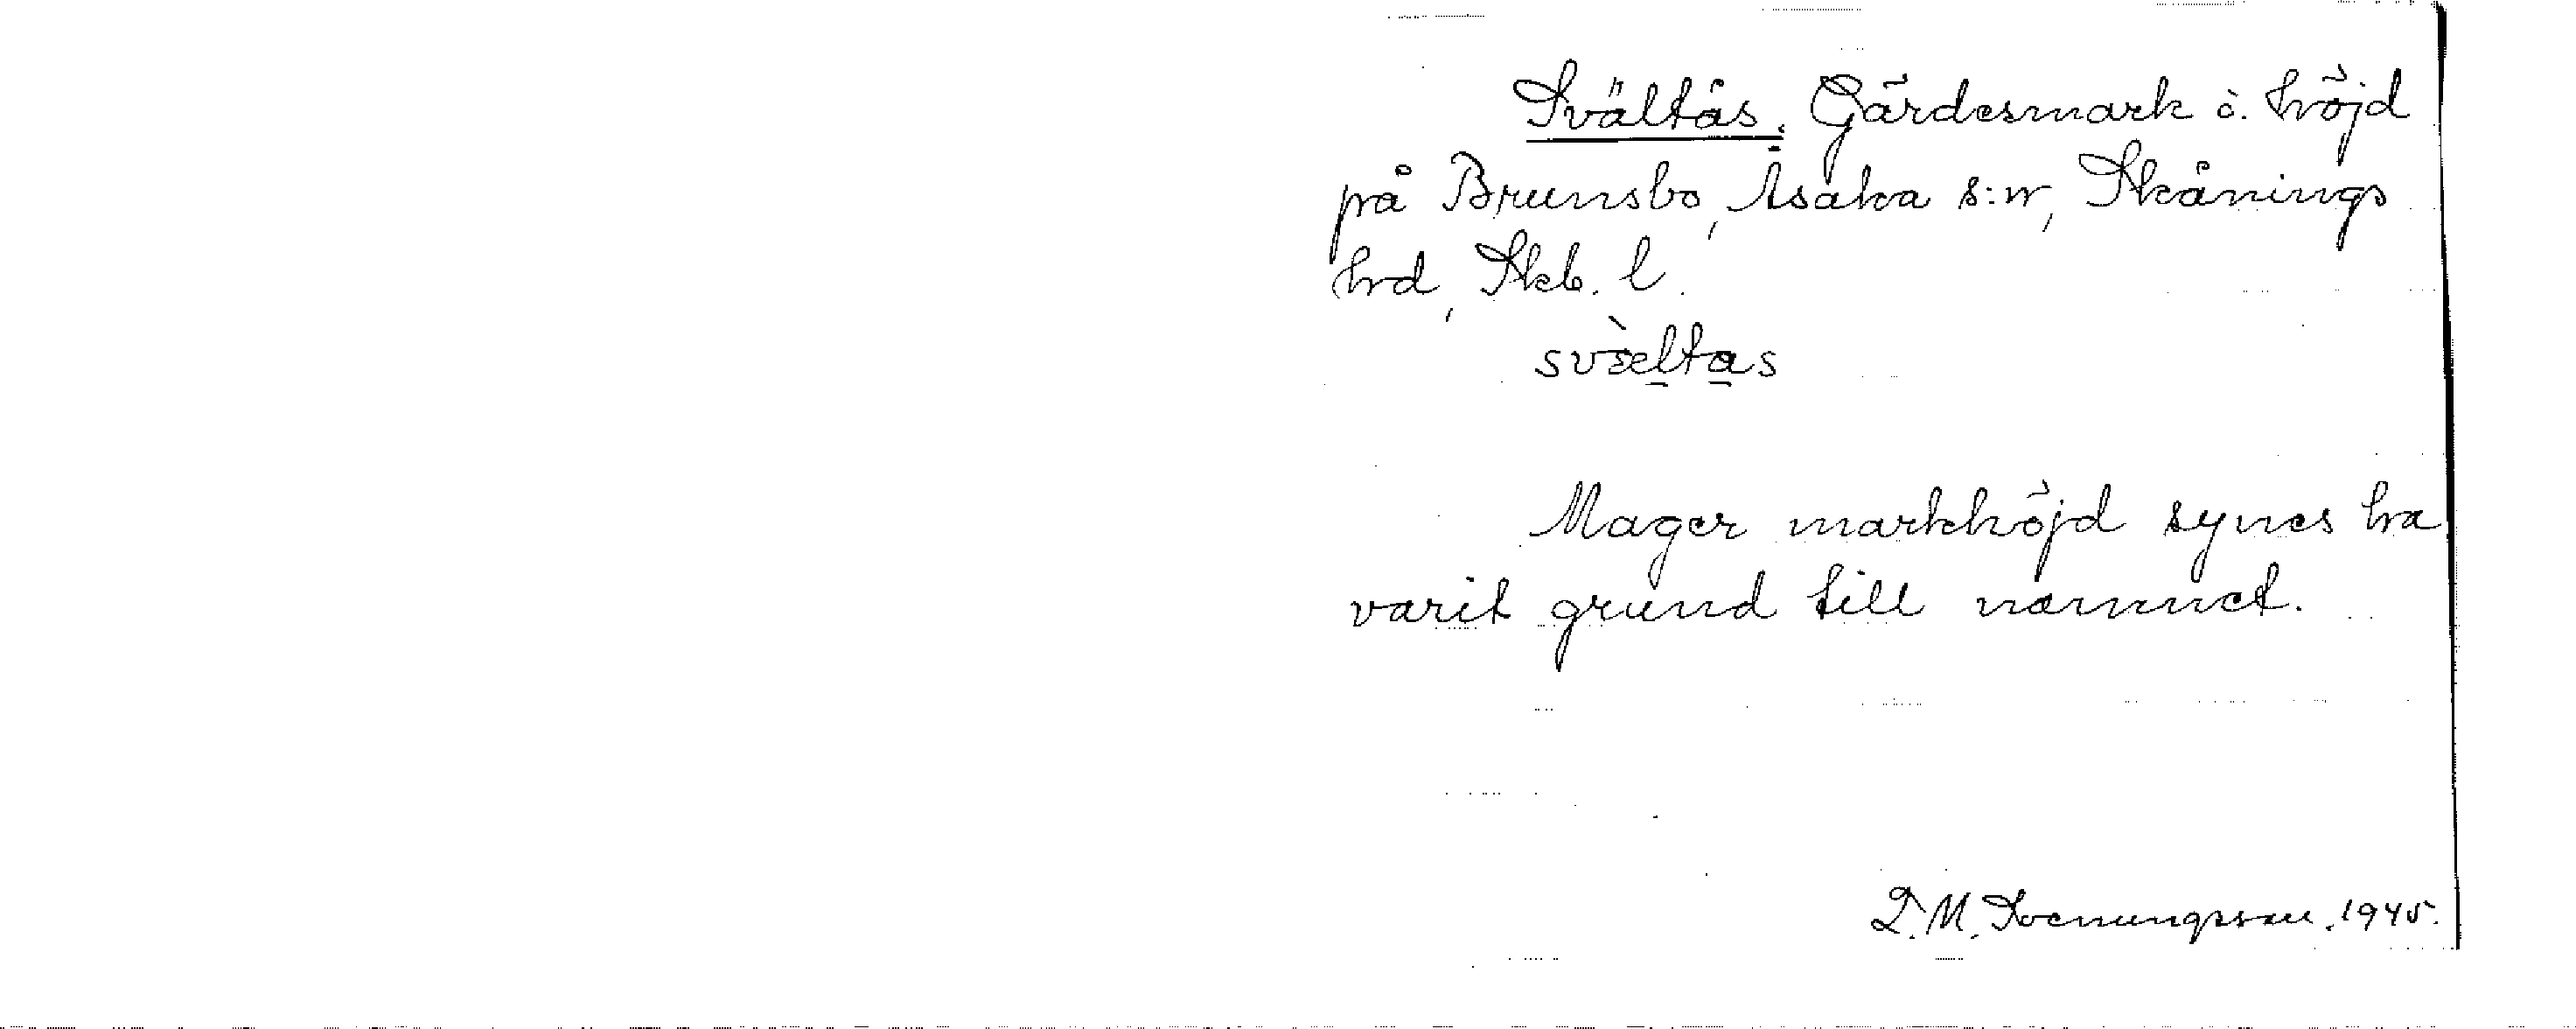 Svältås. Gärdesmark o. höjd
på Brunsbo, Åsaka s:n, Skånings
hrd, Skb. l.
svæ̀ltas
Mager markhöjd synes ha
varit grund till namnet.
D. M. Svenungsson. 1945.